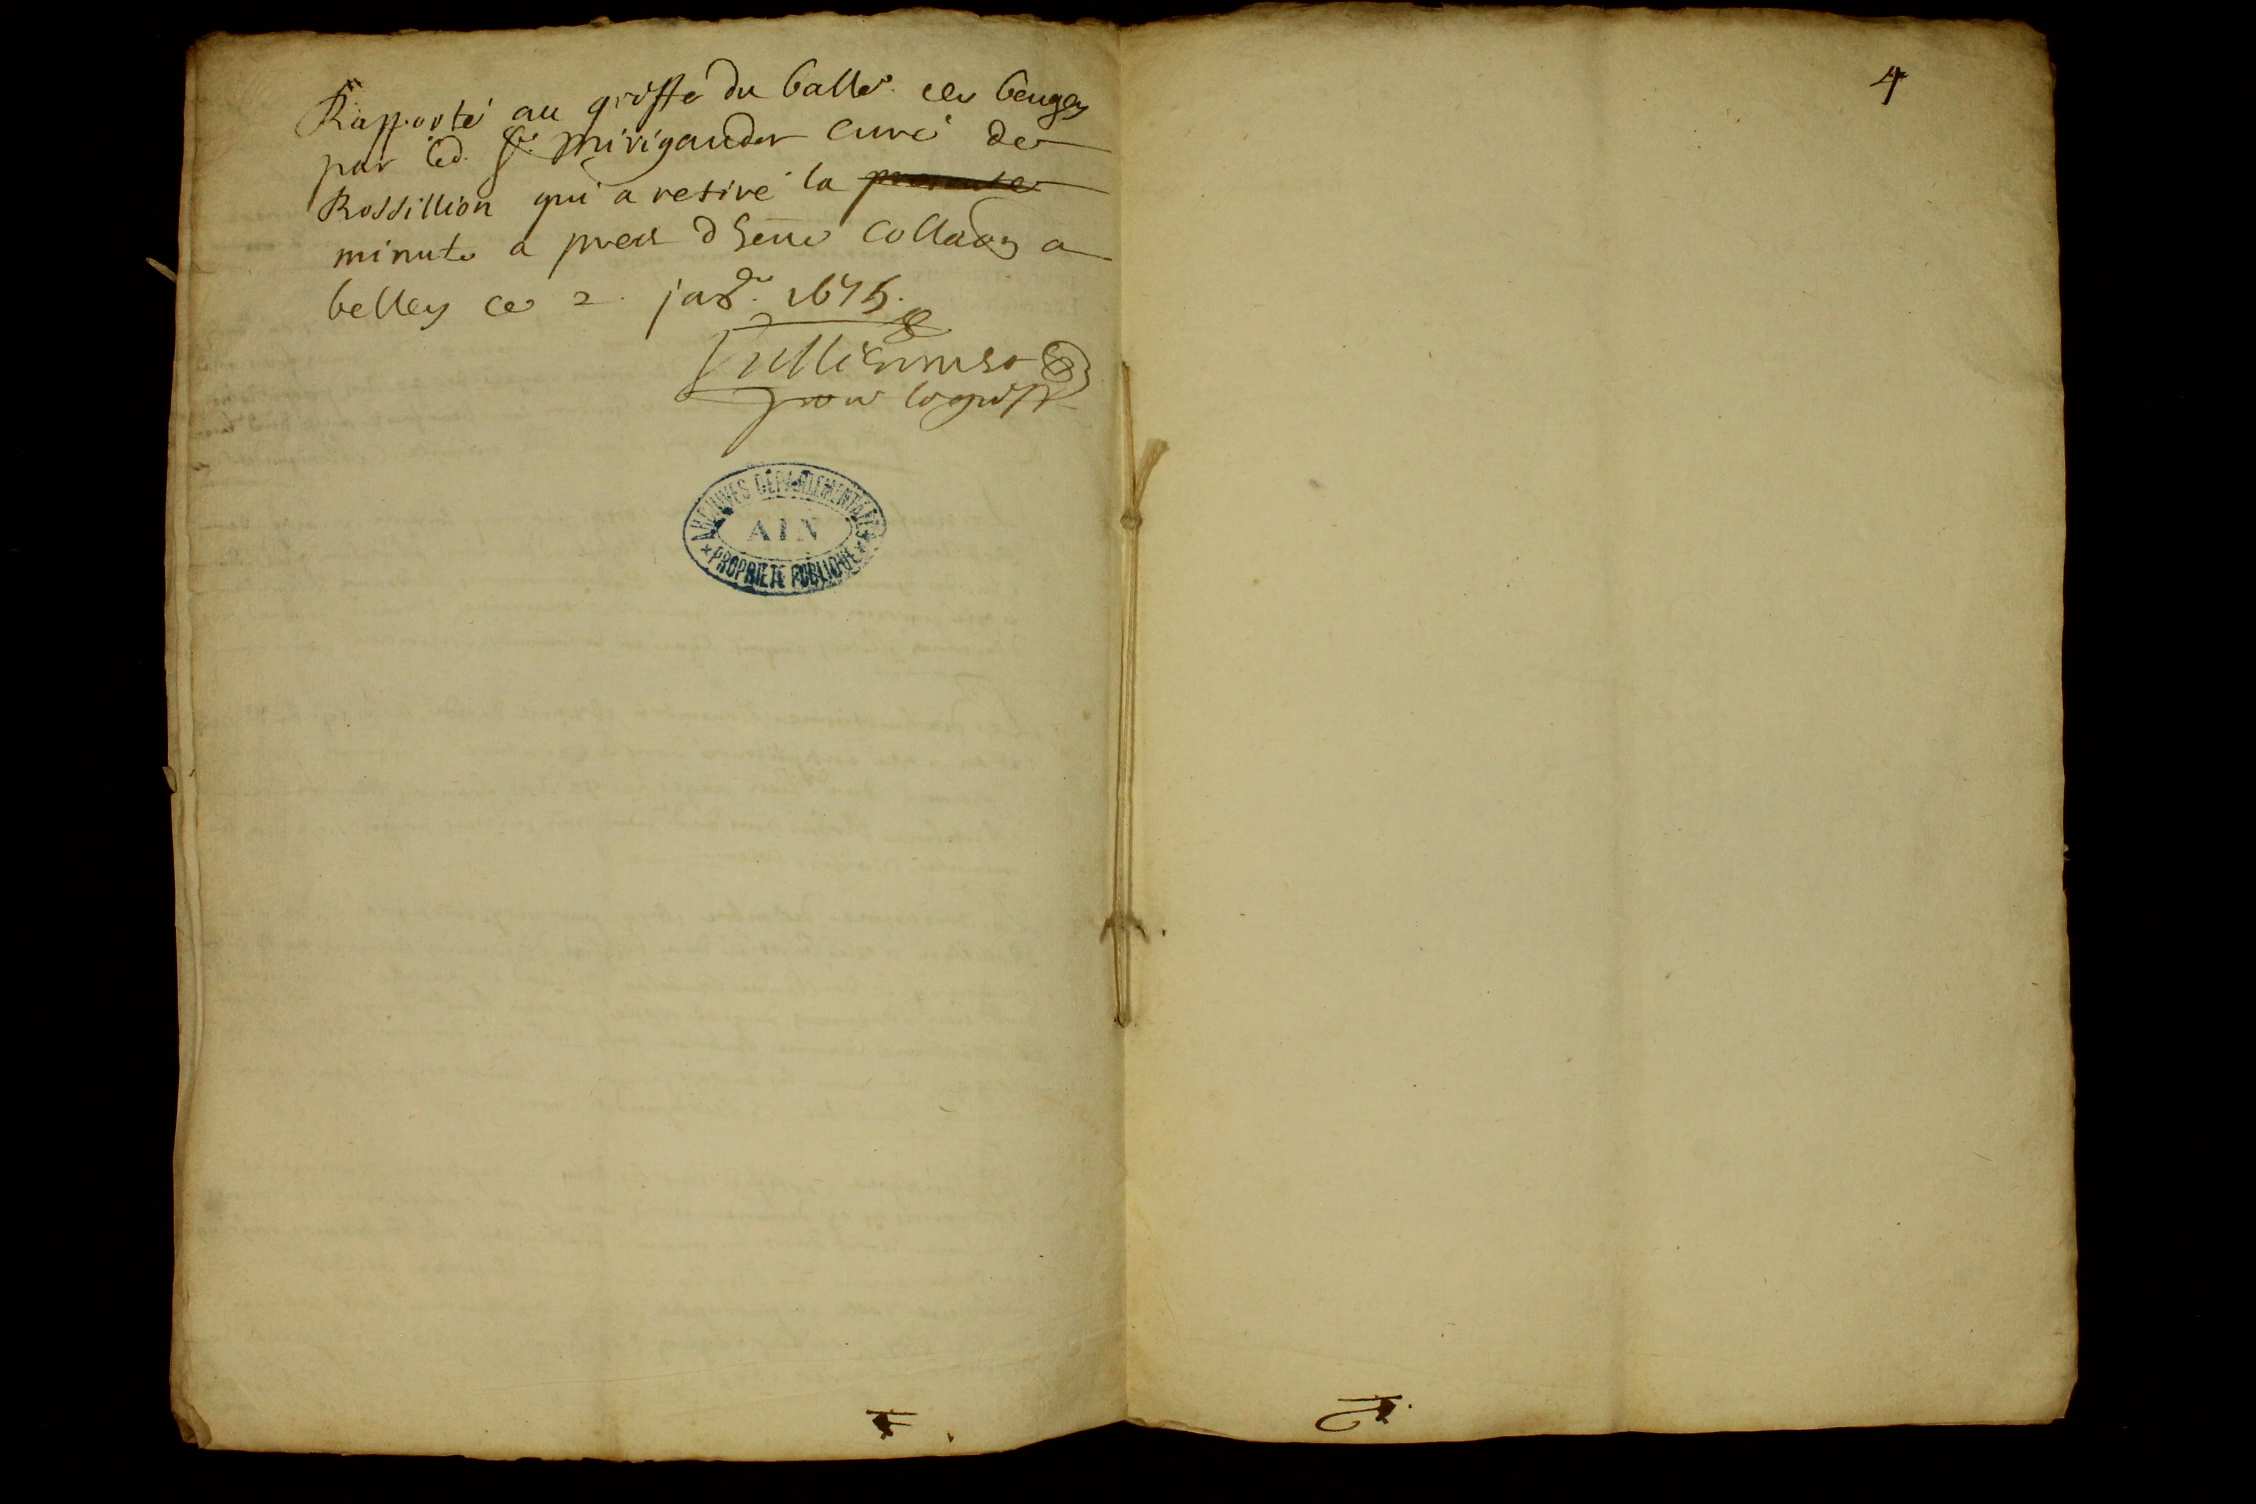 Rapporté au greffe du balle. de beugey
par led. Sr. Mirigaudor curé de
Rossillion qui a retiré la presente
minute a pres d heue collaon a
belley ce 2. jaer. 1675.
Vulliermoz
pour le greffe
ARCHIVES DÉPARTEMENTALES
AIN
PROPRIÉTÉ PUBLIQUE
4